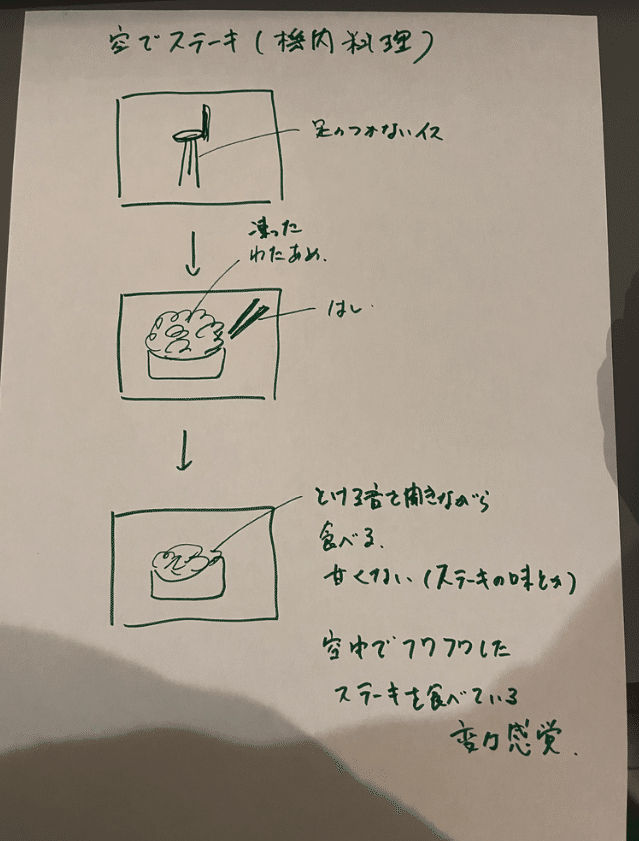 空でステーキ(機内料理)
足のつかないイス
凍った
わたあめ.
はし.
とける音を聞きながら
食べる.
甘くない(ステーキの味とか)
空中でフワフワした
ステーキを食べている
変な感覚.